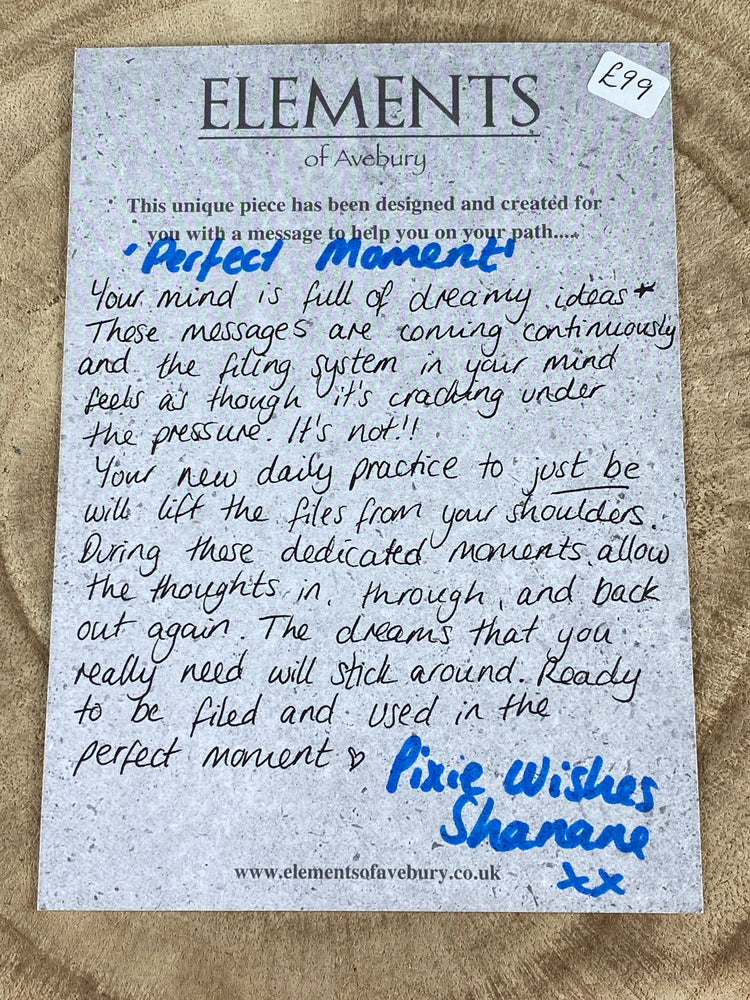 £99
ELEMENTS
of Avebury
This unique piece has been designed and created for
you with a message to help you on your path....
'Perfect Moment'
Your mind is full of dreamy ideas*
These messages are coming continuously
and the filing system in your mind
feels as though it's cracking under
the pressure. It's not!!
Your new daily practice to just be
will lift the files from your shoulders.
During these dedicated moments, allow
the thoughts in, through, and back
out again. The dreams that you
really need will stick around. Ready
to be filed and used in the
perfect moment ♡
Pixie Wishes
Shanane
xx
www.elementsofavebury.co.uk